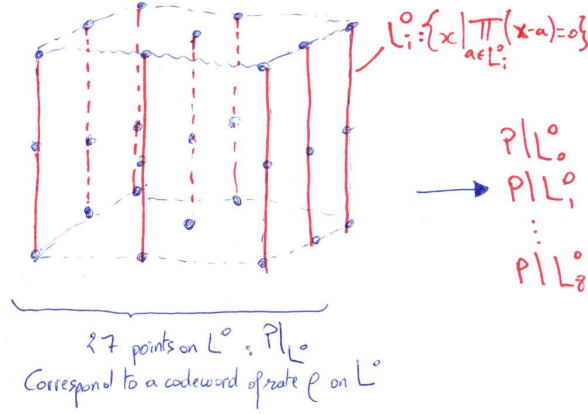 L_i^0 : {x | ∏_{a∈L_i^0} (x-a)=0}
P|L_0^0
P|L_1^0
⋮
P|L_8^0
27 points on L^0 : P|_{L^0}
Correspond to a codeword of rate ρ on L^0